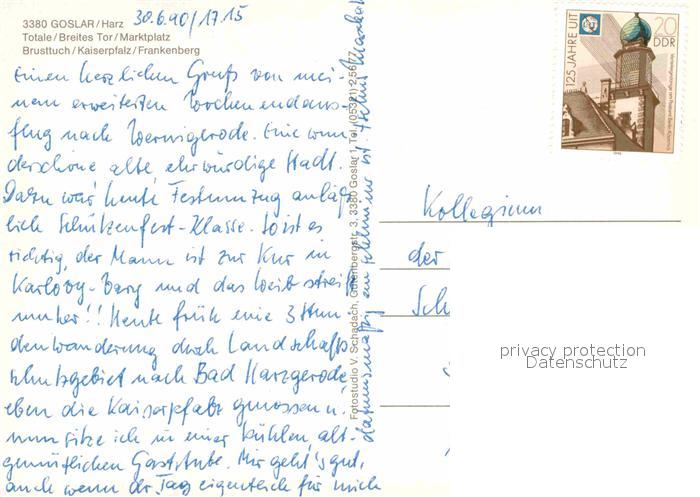 3380 GOSLAR/Harz
Totale/Breites Tor/Marktplatz
Brusttuch/Kaiserpfalz/Frankenberg
30.6.90/17.15
Einen herzlichen Gruß von mei-
nem erweiterten Wochenendaus-
flug nach Wernigerode. Eine wun
derschöne alte, ehrwürdige Stadt.
Dazu war heute Festumzug anläß
lich Schützenfest-Klasse. So ist es
richtig, der Mann ist zur Kur in
Karlovy-Vary und das Weib streift
umher!! Heute früh eine 3 Stun
denwanderung durch Landschafts
schutzgebiet nach Bad Harzgerode,
eben die Kaiserpfalz genossen u.
nun sitze ich in einer kühlen, alt-
gemütlichen Gaststube. Mir geht's gut,
auch wenn der Tag eigentlich für mich
ein schlimmer ist
Fotostudio V. Schadach, Gutenbergstr. 3, 3380 Goslar 1, Tel. (05321)
125 JAHRE UIT
20
DDR
Kollegium
der
Sch
privacy protection
Datenschutz